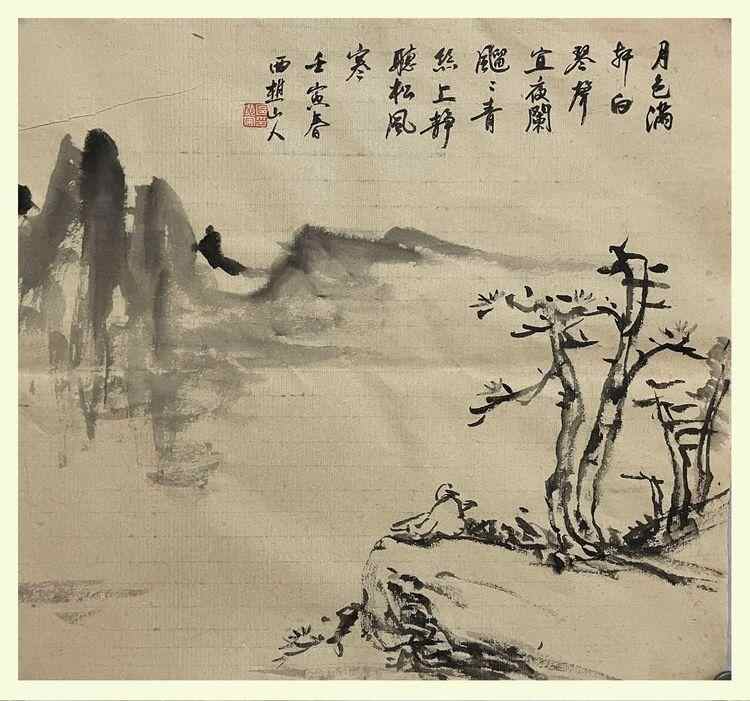 月色滿
軒白
琴聲
宜夜闌
飀〻青
絲上靜
聽松風
寒
壬寅春
西樵山人